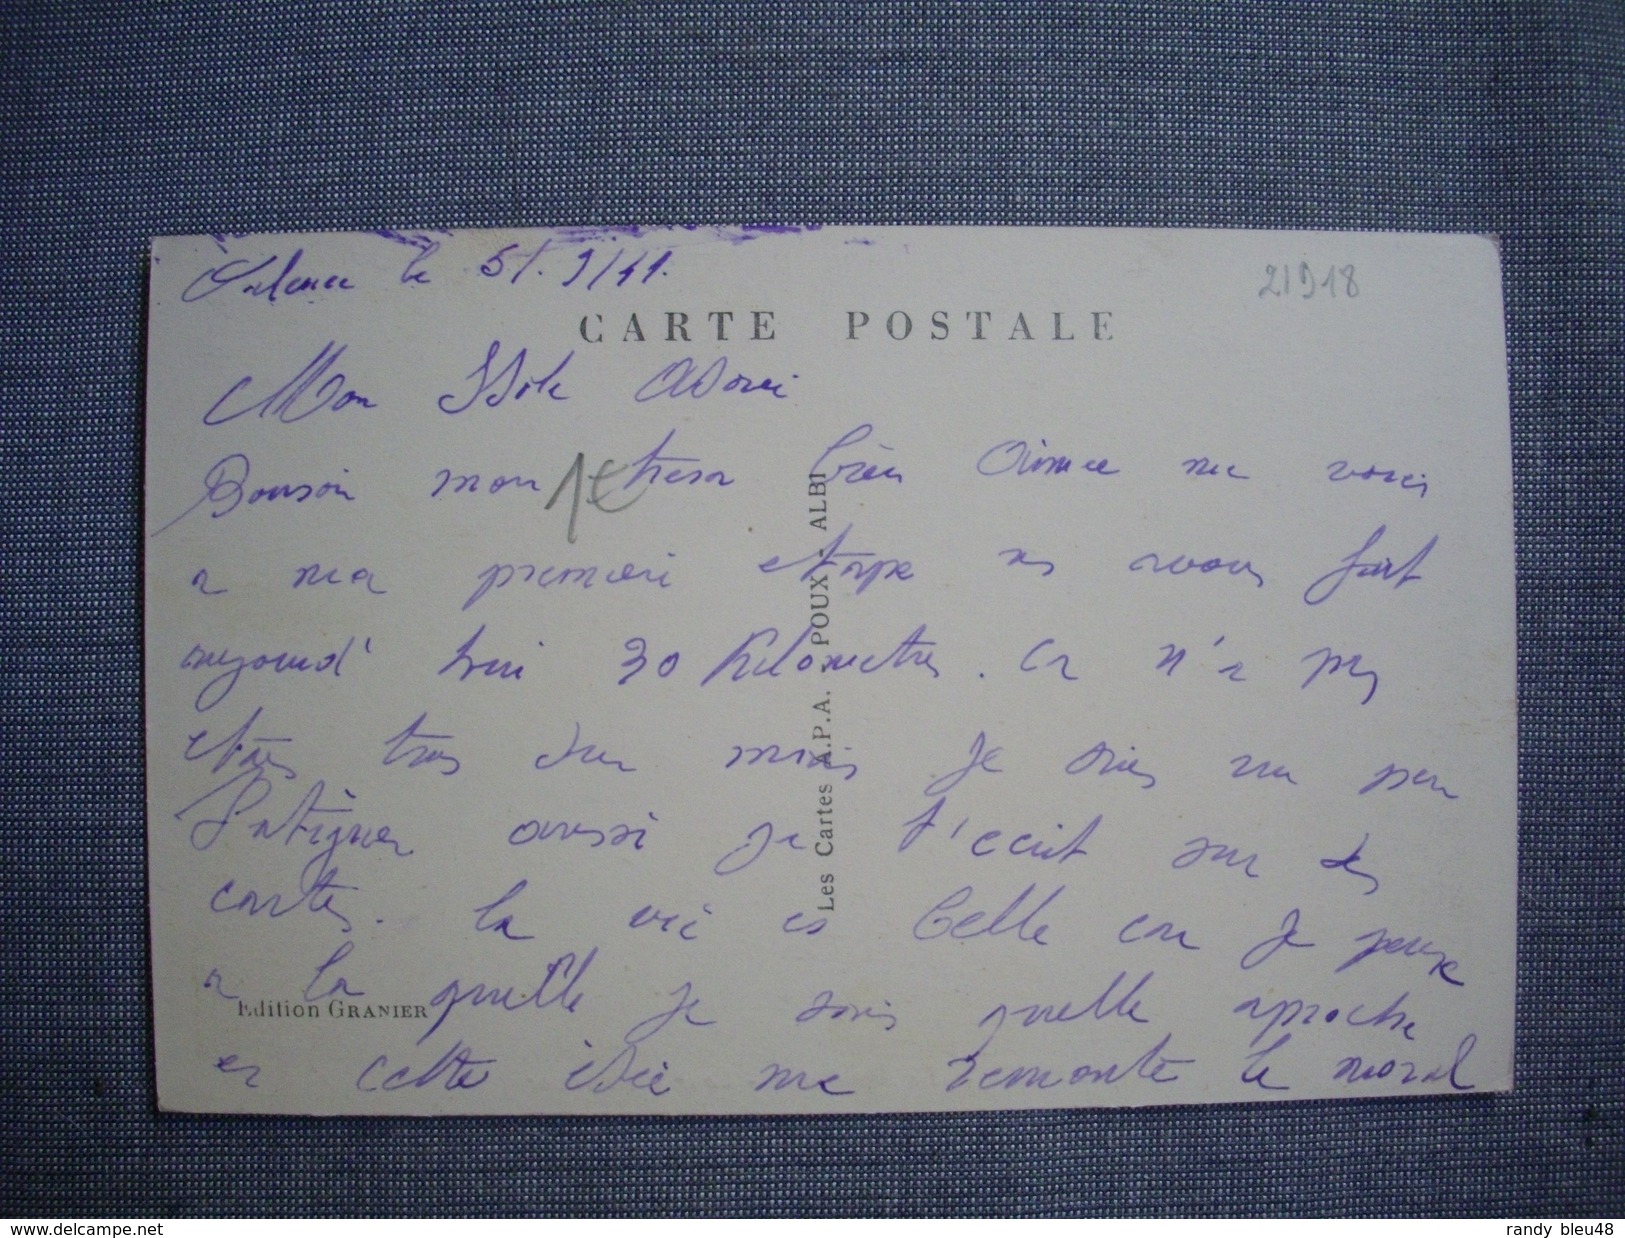 Valence le 5/. 9/41.
21918
CARTE POSTALE
Mon Idole Adoré
Bonsoir mon tresor bien Aimee me voici
1€
a ma premiere etape ns avons fait
aujourd'hui 30 Kilometres. Ca n'a pas
etais tres dur mais je suis un peu
fatiguer aussi je t'ecrit sur des
cartes. la vie es belle car je pense
a la quelle je sais quelle aproche
et cette idée me remonte le moral
Edition GRANIER
Les Cartes A.P.A. POUX - ALBI
www.delcampe.net
randy_bleu48